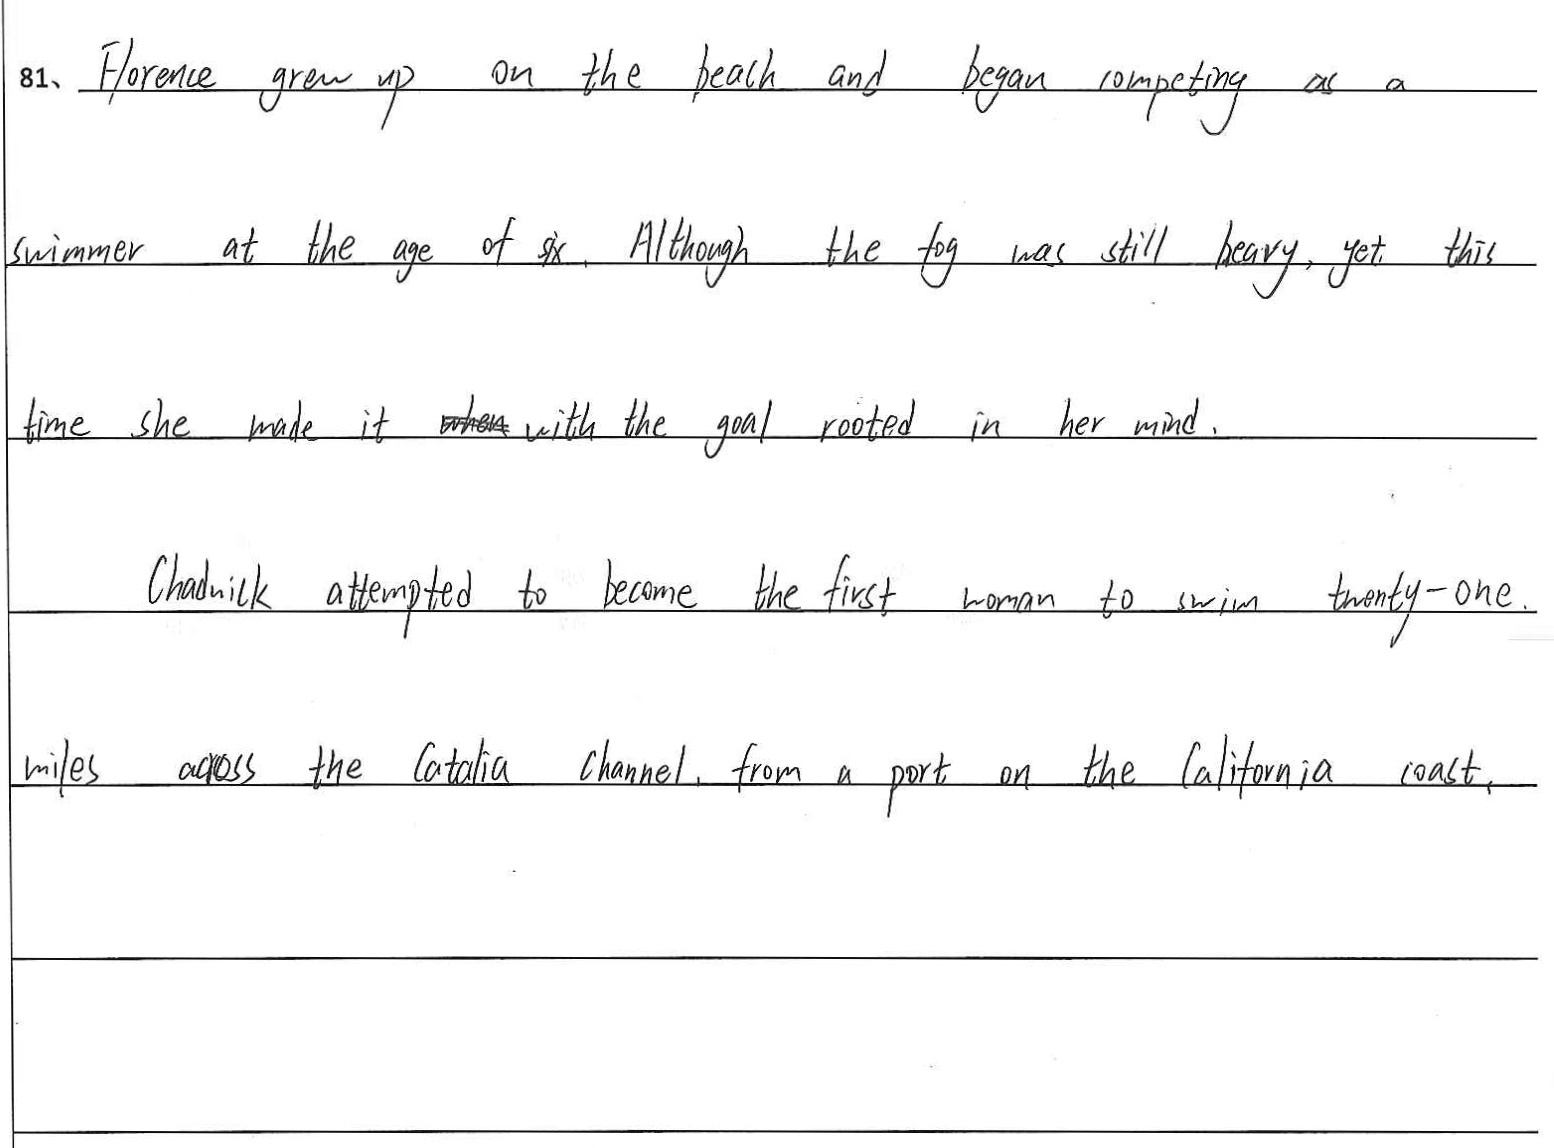 81、Florence grew up on the beach and began competing as a
swimmer at the age of six. Although the fog was still heavy, yet this
time she made it when with the goal rooted in her mind.
Chadwick attempted to become the first woman to swim twenty-one
miles across the Catalia Channel, from a port on the California coast,